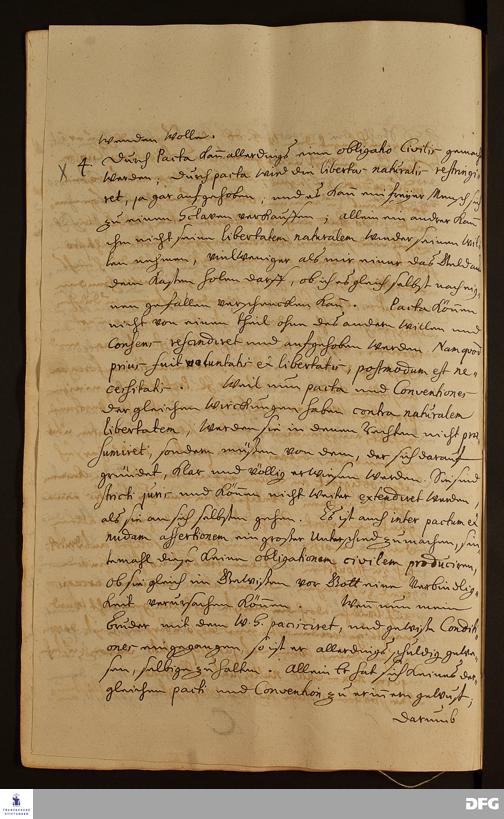 wenden wolle.
X 4. Durch Pacta kan allerdings eine obligatio Civilis gemacht
werden, durch pacta wird die libertas naturalis restringi-
ret, ja gar aufgehoben, und es kan ein freyer Mensch sich
zu einem Sclaven verkauffen; allein ein andrer kan
ihm nicht seine libertatem naturalem wieder seinen Wil-
len nehmen, viel weniger als mir einer das Geld aus
dem Kasten holen darff, ob ich es gleich selbst nach eig-
nen gefallen verschencken kan. Pacta können
nicht von einem Theil ohne des andern Willen und
Consens rescindiret und aufgehoben werden Nam quod
prius fuit voluntatis et libertatis, postmodum est ne-
cessitatis. Weil nun pacta und Conventiones
dergleichen Wirckungen haben contra naturalem
libertatem, werden sie in denen Rechten nicht prae-
sumiret, sondern müssen von dem, der sich darauf
gründet, klar und völlig erwiesen werden. Sie sind
stricti juris und können nicht weiter extendiret werden,
als sie an sich selbsten gehen. Es ist auch inter pactum et
nudam assertionem ein groser Unterschied zu machen, sin-
temahl diese keine obligationem civilem produciren,
ob sie gleich im Gewissen vor Gott eine Verbindlig-
keit verursachen können. Wenn nun mein
Bruder mit dem W. H. pacisciret, und gewisse Conditi-
ones eingegangen, so ist er allerdings schuldig gewe-
sen, selbige zu halten. Allein Er hat sich keines der-
gleichen pacti und Convention zu erinnern gewust,
darumb
FRANCKESCHE
STIFTUNGEN
DFG